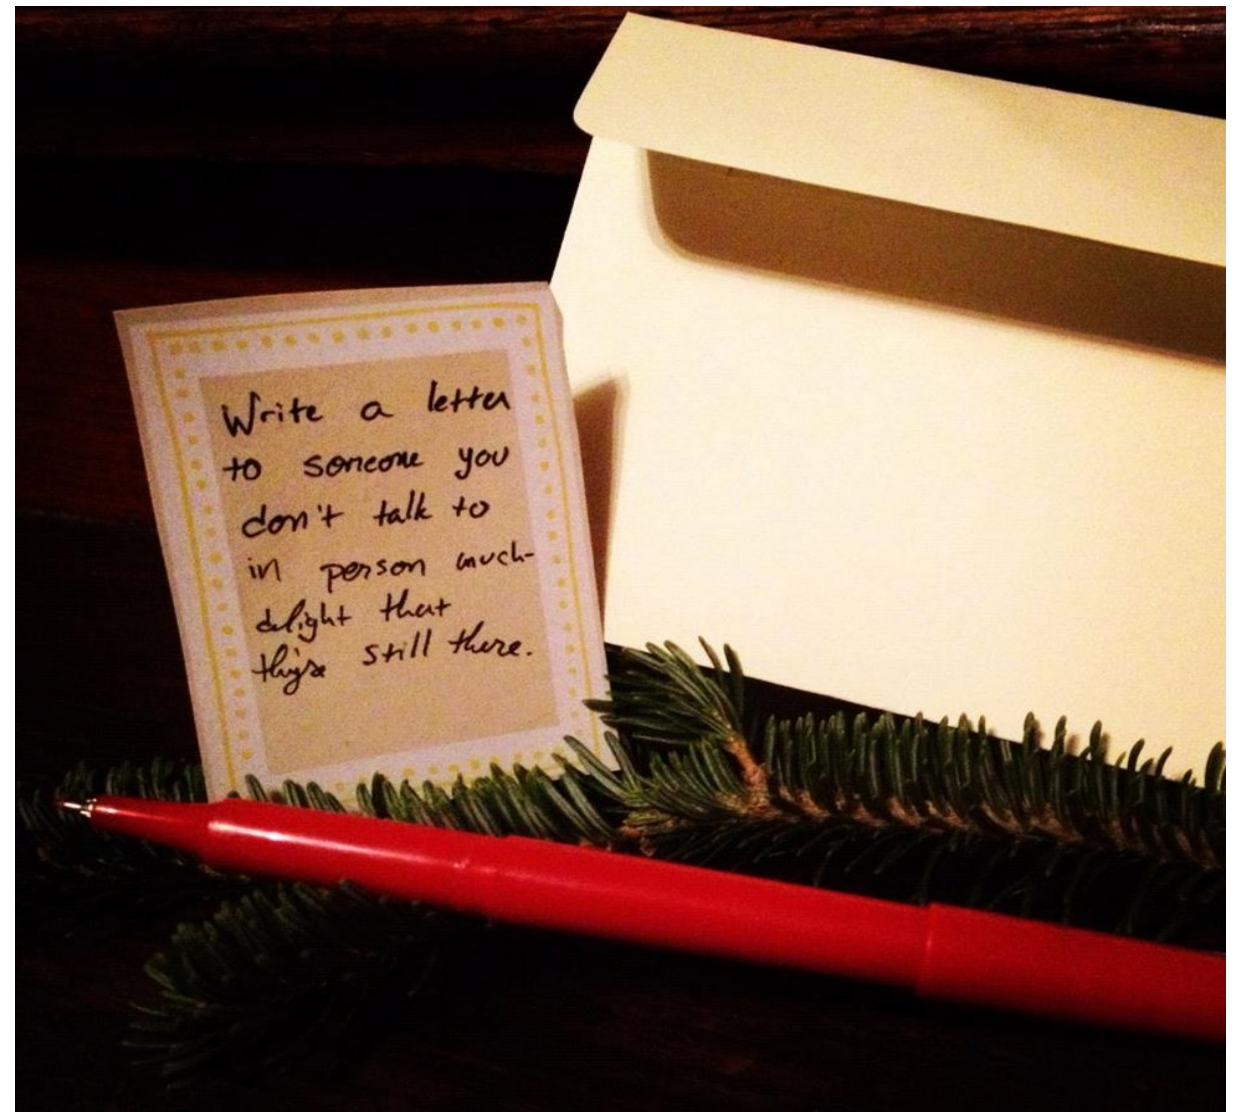 Write a letter
to someone you
don't talk to
in person much-
delight that
still there.